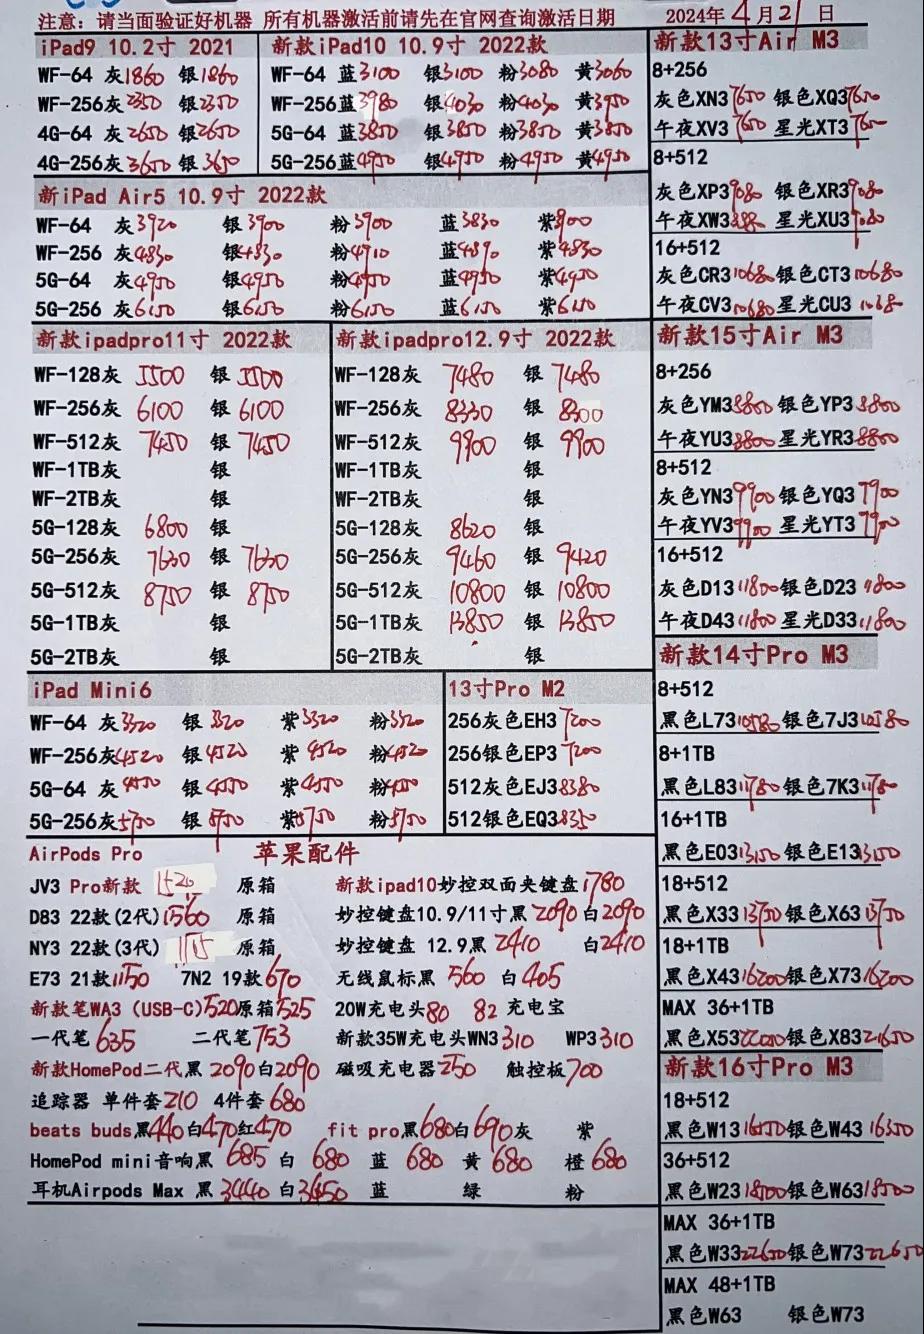 注意：请当面验证好机器 所有机器激活前请先在官网查询激活日期
2024年4月21日
iPad9 10.2寸 2021
WF-64 灰1860 银1860
WF-256灰2350 银2350
4G-64 灰2650 银2650
4G-256灰3650 银3650
新款iPad10 10.9寸 2022款
WF-64 蓝3100 银3100 粉3080 黄3060
WF-256蓝3980 银4030 粉4030 黄3950
5G-64 蓝3850 银3850 粉3850 黄3850
5G-256蓝4950 银4950 粉4950 黄4950
新iPad Air5 10.9寸 2022款
WF-64 灰3920 银3900 粉3900 蓝3830 紫3900
WF-256 灰4830 银4830 粉4910 蓝4890 紫4830
5G-64 灰4950 银4950 粉4950 蓝4950 紫4950
5G-256 灰6150 银6150 粉6150 蓝6150 紫6150
新款ipadpro11寸 2022款
WF-128灰 5500 银 5500
WF-256灰 6100 银 6100
WF-512灰 7450 银 7450
WF-1TB灰 银
WF-2TB灰 银
5G-128灰 6800 银
5G-256灰 7630 银 7630
5G-512灰 8750 银 8750
5G-1TB灰 银
5G-2TB灰 银
新款ipadpro12.9寸 2022款
WF-128灰 7480 银 7480
WF-256灰 8330 银 8300
WF-512灰 9900 银 9900
WF-1TB灰 银
WF-2TB灰 银
5G-128灰 8620 银
5G-256灰 9460 银 9420
5G-512灰 10800 银 10800
5G-1TB灰 13850 银 13850
5G-2TB灰 银
iPad Mini6
WF-64 灰3320 银3320 紫3320 粉3320
WF-256灰4520 银4520 紫4520 粉4520
5G-64 灰4550 银4550 紫4550 粉4550
5G-256灰5750 银5750 紫5750 粉5750
13寸Pro M2
256灰色EH3 7200
256银色EP3 7200
512灰色EJ3 8380
512银色EQ3 8350
AirPods Pro 苹果配件
JV3 Pro新款 1520 原箱
D83 22款(2代)1560 原箱
NY3 22款(3代) 1115 原箱
E73 21款1150 7N2 19款670
新款笔WA3 (USB-C)520原箱525
一代笔635 二代笔753
新款HomePod二代黑 2090白2090
追踪器 单件套210 4件套680
beats buds黑440白470红470 fit pro黑680白690灰 紫
HomePod mini音响黑 685 白 680 蓝 680 黄 680 橙 680
耳机Airpods Max 黑 3440 白3450 蓝 绿 粉
新款ipad10妙控双面夹键盘1780
妙控键盘10.9/11寸黑2090白2090
妙控键盘 12.9黑 2410 白2410
无线鼠标黑 560 白405
20W充电头80 82 充电宝
新款35W充电头WN3 310 WP3 310
磁吸充电器250 触控板700
新款13寸Air M3
8+256
灰色XN3 7650 银色XQ3 7650
午夜XV3 7650 星光XT3 7650
8+512
灰色XP3 9080 银色XR3 9080
午夜XW3 星光XU3 9080
16+512
灰色CR3 10680 银色CT3 10680
午夜CV3 10680 星光CU3 10680
新款15寸Air M3
8+256
灰色YM3 8800 银色YP3 8800
午夜YU3 8800 星光YR3 8800
8+512
灰色YN3 9900 银色YQ3 9900
午夜YV3 9900 星光YT3 9900
16+512
灰色D13 11800 银色D23 11800
午夜D43 11800 星光D33 11800
新款14寸Pro M3
8+512
黑色L73 10580 银色7J3 10580
8+1TB
黑色L83 11780 银色7K3 11780
16+1TB
黑色E03 13150 银色E13 13150
18+512
黑色X33 13750 银色X63 13750
18+1TB
黑色X43 16200 银色X73 16200
MAX 36+1TB
黑色X53 银色X83 21650
新款16寸Pro M3
18+512
黑色W13 银色W43 16350
36+512
黑色W23 18500 银色W63 18500
MAX 36+1TB
黑色W33 22650 银色W73 22650
MAX 48+1TB
黑色W63 银色W73